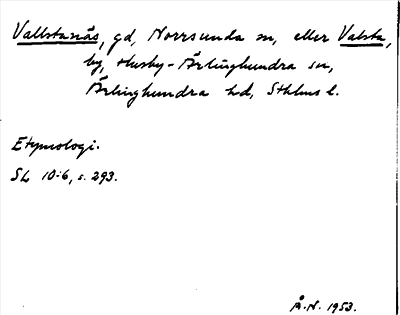 Vallstanäs, gd, Norrsunda sn, eller Valsta,
by, Husby-Ärlinghundra sn,
Ärlinghundra hd, Sthlms l.
Etymologi.
SL 10:6, s. 293.
Å.N. 1953.